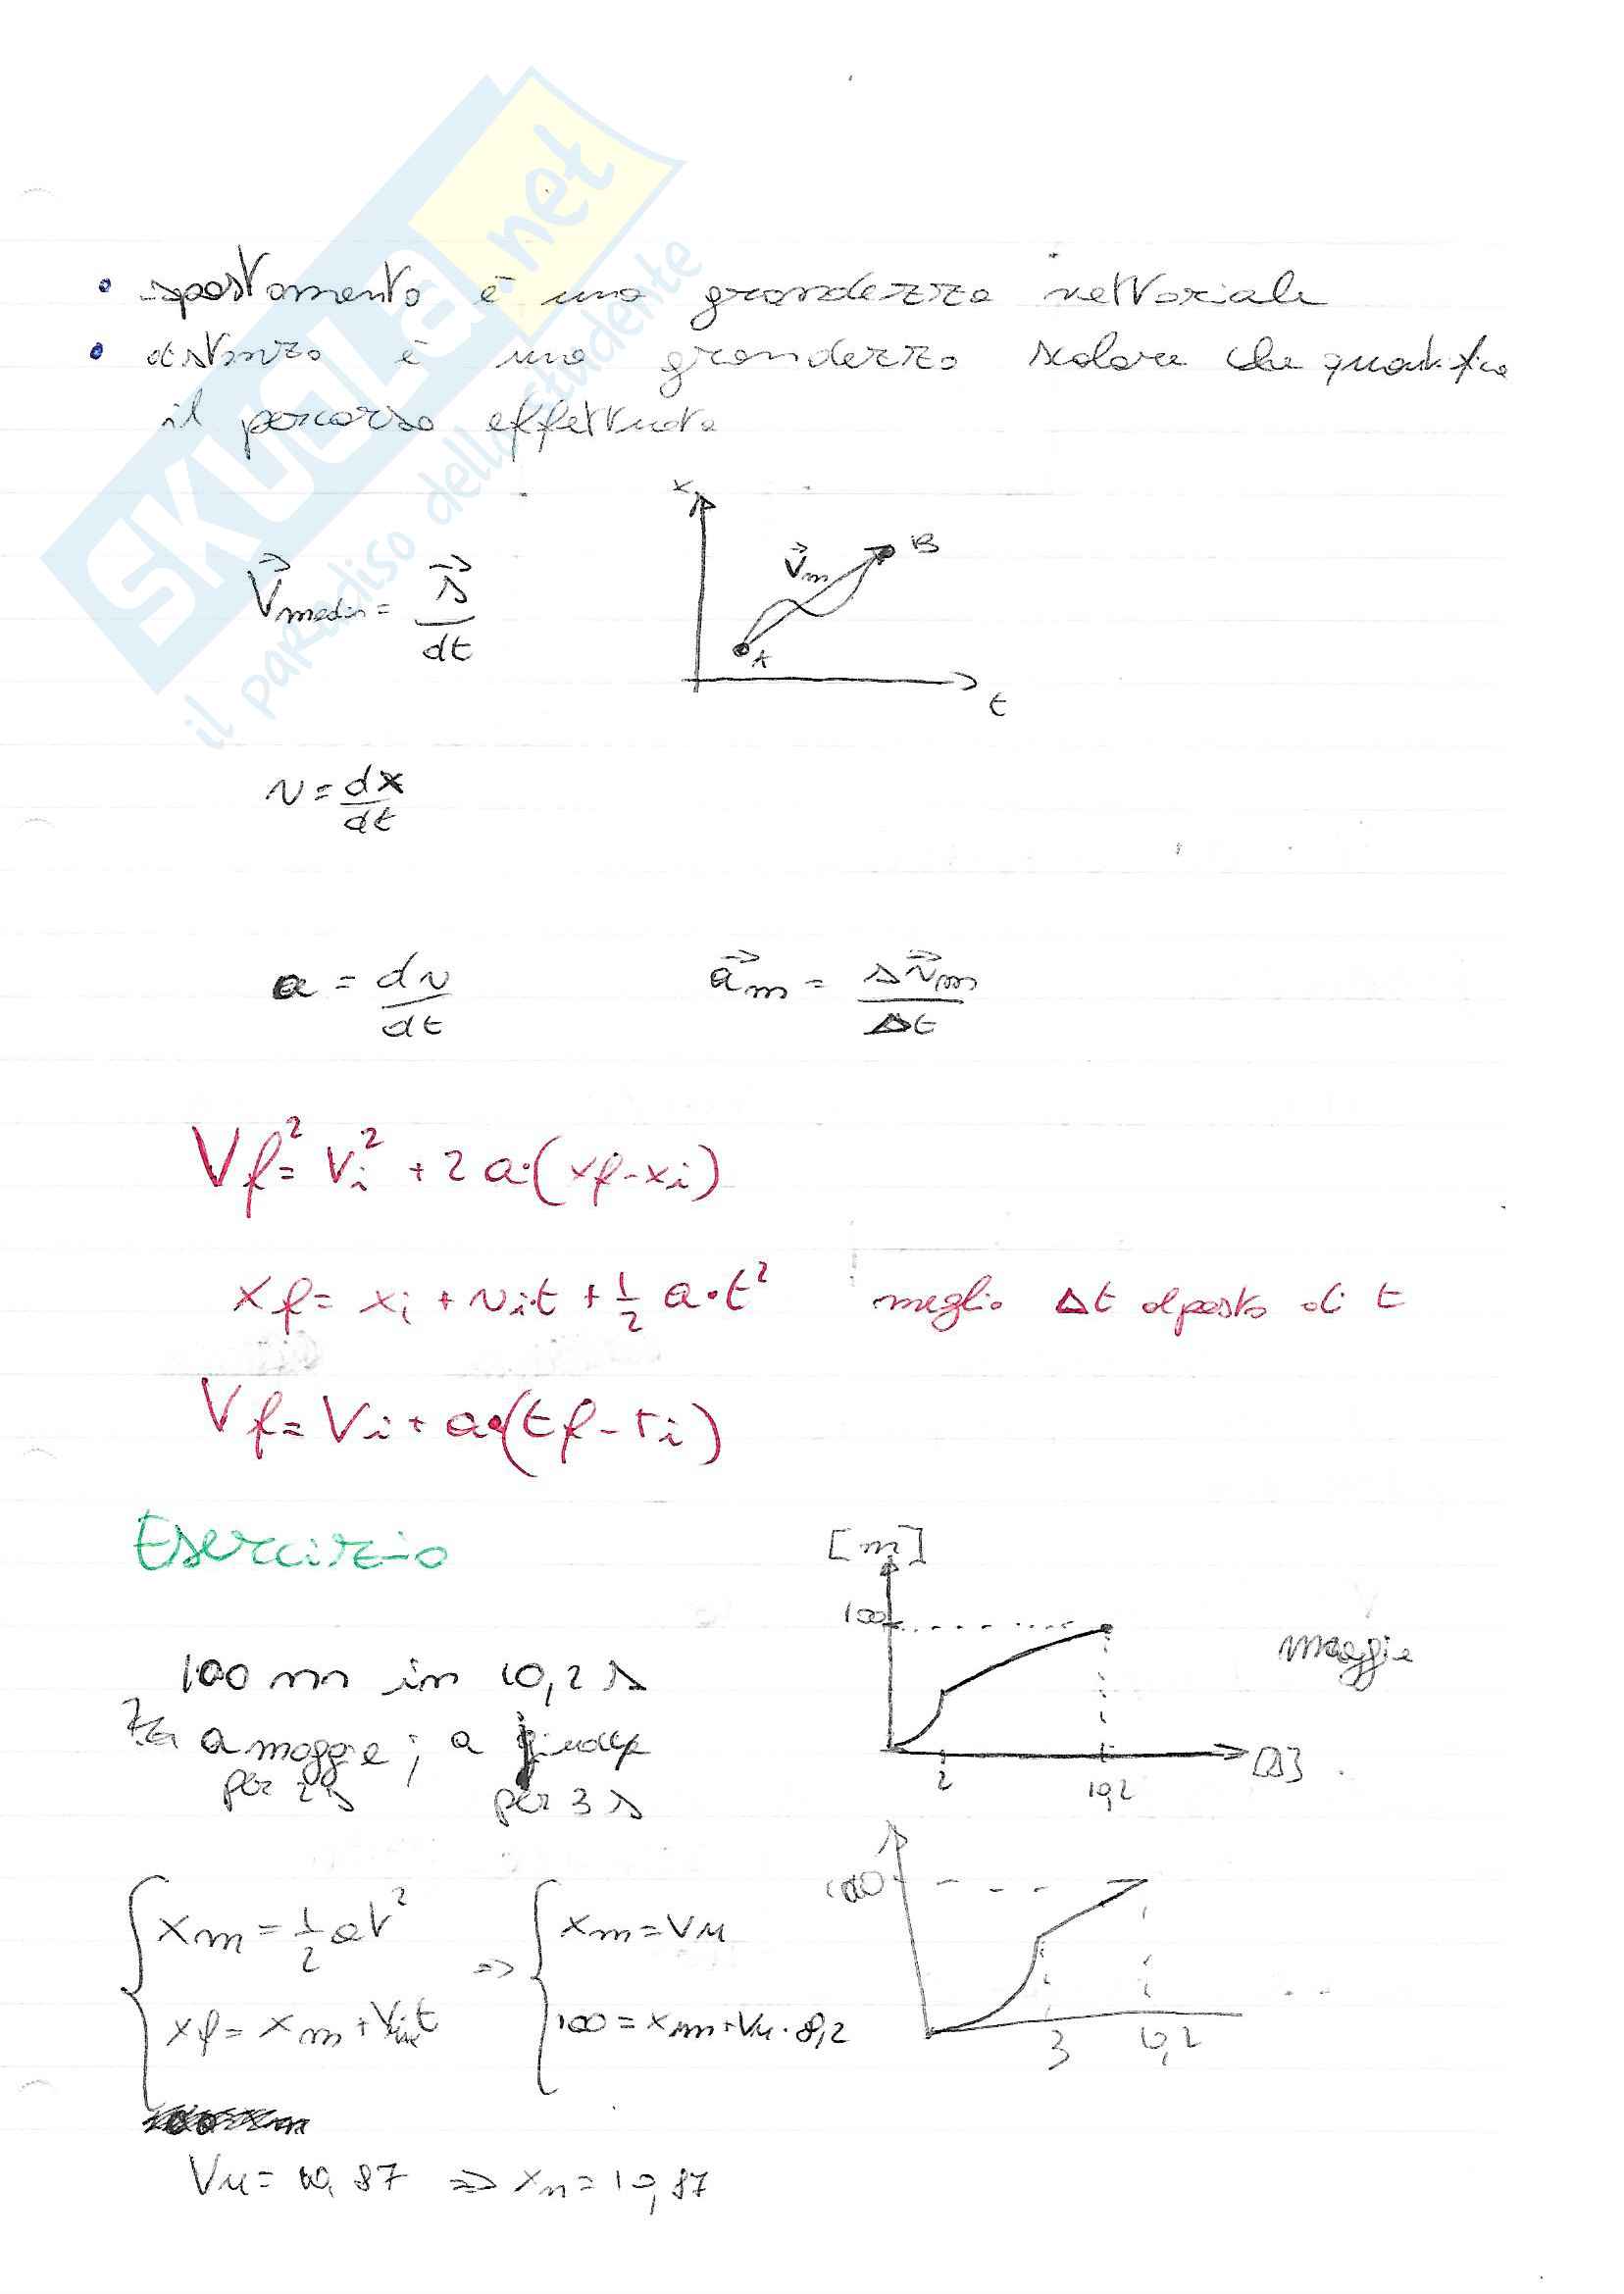 SKUOLA.net
il paradiso dello studente
• spostamento è una grandezza vettoriale
• distanza è una grandezza scalare che quantifica
il percorso effettuato
x
B
V⃗m
A
t
V⃗media = s⃗/dt
v = dx/dt
a = dv/dt    a⃗m = Δv⃗m/Δt
Vf² = Vi² + 2a·(xf-xi)
xf = xi + vi·t + 1/2 a·t²    meglio Δt al posto di t
Vf = Vi + a·(tf-ti)
Esercizio
[m]
100
maggie
2    10,2    [s]
100 m in 10,2 s
a maggie; a
per 2 s    per 3 s
100
3    10,2
xm = 1/2 at²  =>  xm = Vu
xf = xm +    100 = xm+Vu·8,2
Vu = 10,87 => xm = 10,87